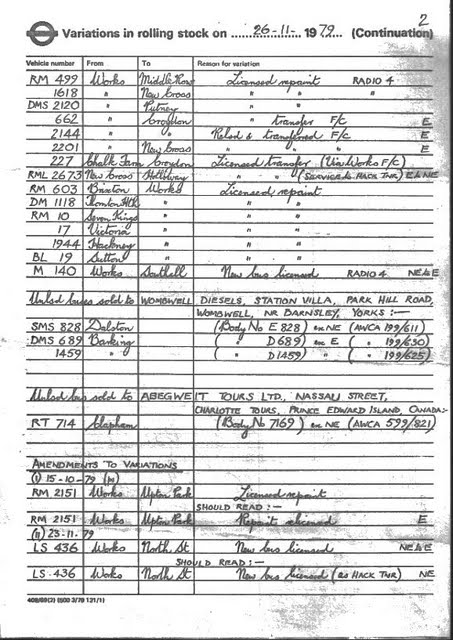 2
Variations in rolling stock on ......26-11-.... 1979.... (Continuation)
Vehicle number From To Reason for variation
RM 499 Works Middle Row Licensed repaint RADIO 4
1618 " New Cross " " "
DMS 2120 " Putney " "
662 " Croydon " transfer F/C E
2144 " " Relsd & transferred F/C E
2201 " New Cross " " " E
227 Chalk Farm Croydon Licensed transfer (Via Works F/C)
RML 2673 New Cross Holloway " " (SERVICE & HACK TNR) E & NE
RM 603 Brixton Works Licensed repaint
DM 1118 Thornton Hth " " "
RM 10 Seven Kings " " "
17 Victoria " " "
1944 Hackney " " "
BL 19 Sutton " " "
M 140 Works Southall New bus licensed RADIO 4 NE & E
Unlsd buses sold to WOMBWELL DIESELS, STATION VILLA, PARK HILL ROAD,
WOMBWELL, NR BARNSLEY, YORKS :—
SMS 828 Dalston (Body No E 828) ex NE (AWCA 199/611)
DMS 689 Barking ( " D 689) ex E ( " 199/630)
1459 " ( " D 1459) " ( " 199/625)
Unlsd bus sold to ABEGWEIT TOURS LTD., NASSAU STREET,
CHARLOTTE TOURS, PRINCE EDWARD ISLAND, CANADA:-
RT 714 Clapham (Body No 7169) ex NE (AWCA 599/821)
AMENDMENTS TO VARIATIONS
(1) 15-10-79
RM 2151 Works Upton Park Licensed repaint
SHOULD READ :—
RM 2151 Works Upton Park Repaint E
(11) 23-11-79
LS 436 Works North St New bus licensed NE & E
SHOULD READ :—
LS 436 Works North St New bus licensed (as HACK TNR) NE